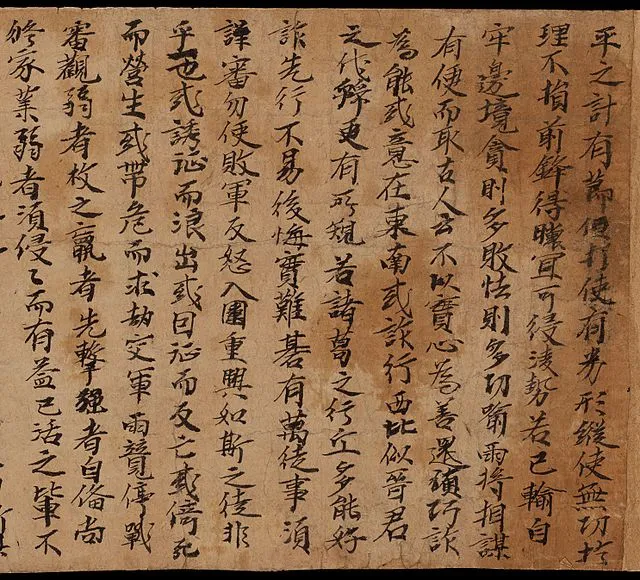 平之計有節但打使有劣形縱使無功於
理不損前鋒得驤冝可侵淩勢若已輸自
牢邊境貪則多敗怯則多功喻兩將相謀
有便而取古人云不以實心為善還須巧詐
為能或意在東南或詐行西北似晉君
之伐更有所規若諸葛之行丘多能好
詐先行不易後悔實難碁有萬徒事須
謹審勿使敗軍反怒入圍重興如斯之徒非
乎一也或誘征而浪出或因征而反亡或倚死
而營生或帶危而求劫交軍兩競停戰
審觀弱者枚之羸者先擊強者自俻尚
修家業弱者須侵々而有益已活之輩不